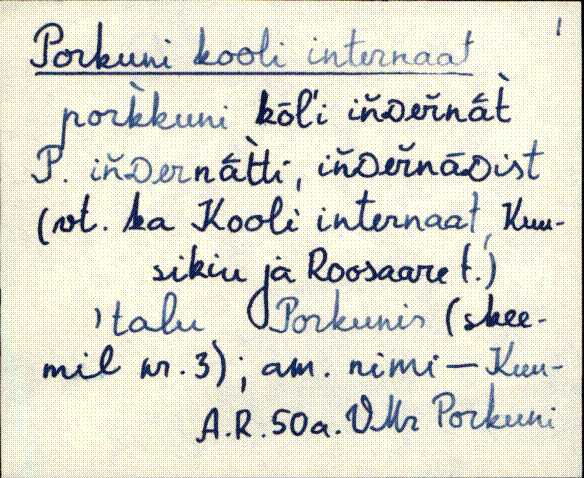 1
Porkuni kooli internaat
pork̀kuni kōĺi iňDeřnā́t̀
P. iňDernā́t̀ti, iňDeřnāDist
(vt. ka Kooli internaat, Kuu-
sikiu ja Roosaare t.)
talu Porkunis (skee-
mil nr. 3); am. nimi — Kuu-
A.R. 50a. VMr Porkuni